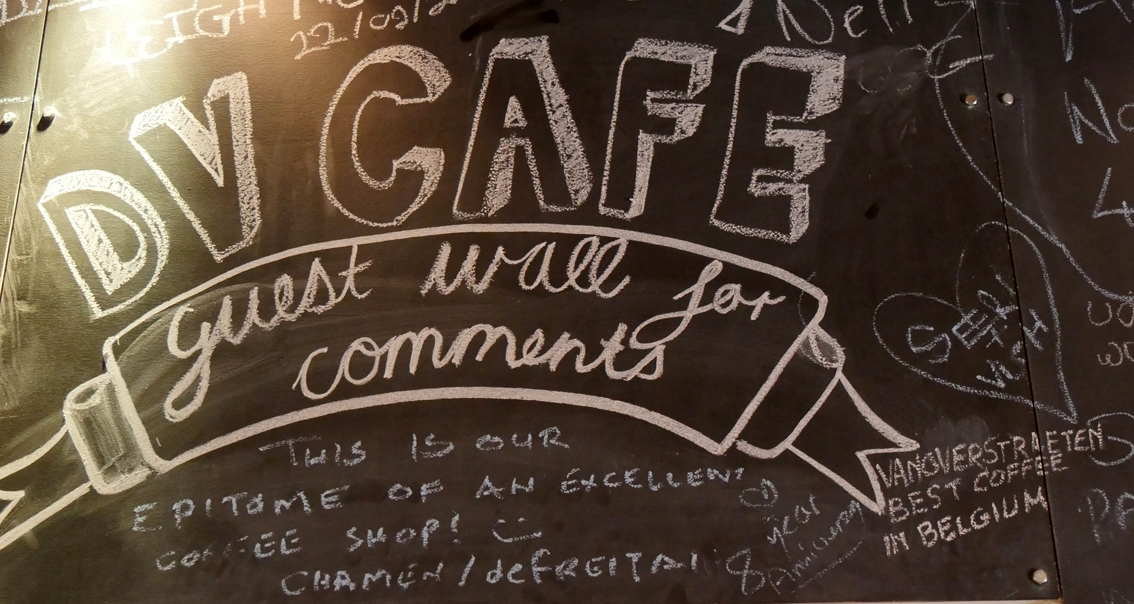 LEIGH
22/09/2
Nell
DV CAFE
guest wall for
comments
THIS IS OUR
EPITOME OF AN EXCELLENT
COFFEE SHOP!
CHAMEN / deFREITAI
8 year
VANOVERSTRAETEN
BEST COFFEE
IN BELGIUM